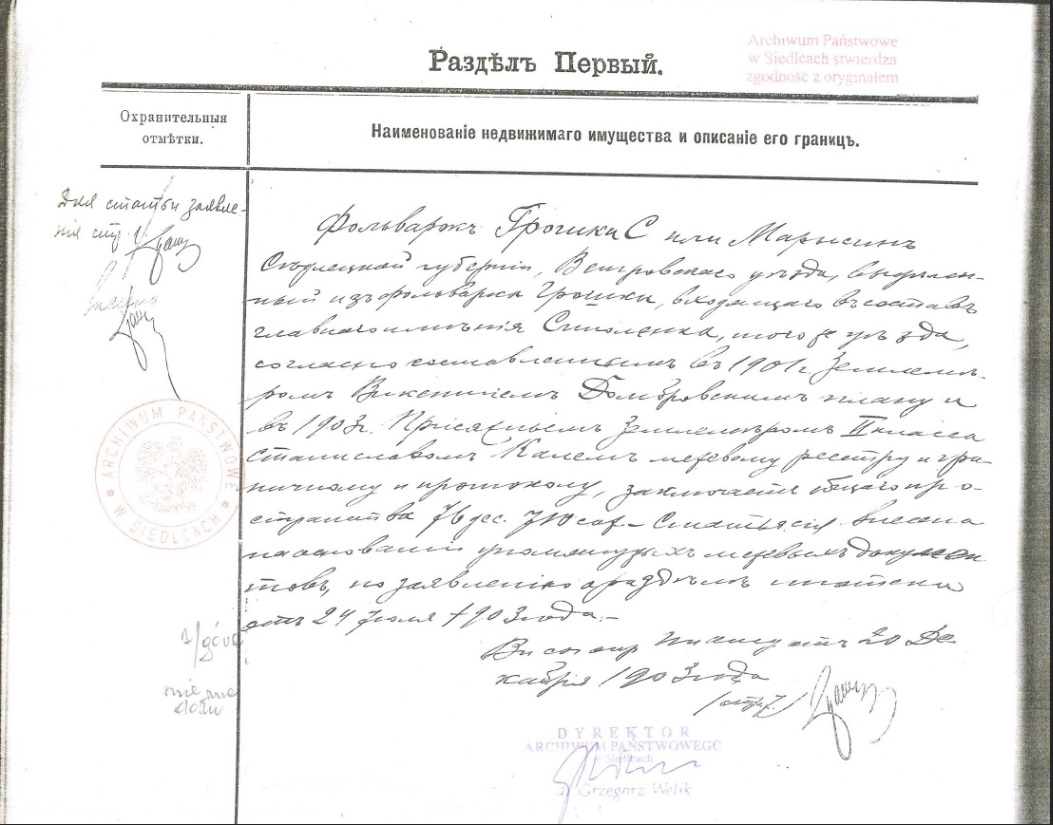 Раздѣлъ Первый.
Archiwum Państwowe
w Siedlcach stwierdza
zgodność z oryginałem
Охранительныя
отмѣтки.
Наименованіе недвижимаго имущества и описаніе его границъ.
Для статьи заявле-
нія стр.
Фольваркъ Грошки С или Марысинъ
Сѣдлецкой губерніи, Венгровскаго уѣзда, выдѣлен-
ный изъ фольварка Грошки, входящаго въ составъ
главнаго имѣнія Стполенка, того же уѣзда,
согласно составленнымъ въ 1901 г. Землемѣ-
ромъ Викентіемъ Домбровскимъ плану и
въ 1903 г. Присяжнымъ Землемѣромъ II класса
Станиславомъ Калемъ межевому реестру и гра-
ничному протоколу, заключаетъ общаго про-
странства 76 дес. 710 саж. Статья сія внесена
на основаніи упомянутыхъ межевыхъ докумен
товъ, по заявленію о раздѣлѣ
отъ 24 Іюля 1903 года.
отъ 20 Де
кабря 1903 года
ARCHIWUM PAŃSTWOWE
W SIEDLCACH
DYREKTOR
ARCHIWUM PAŃSTWOWEGO
w Siedlcach
Grzegorz Welik